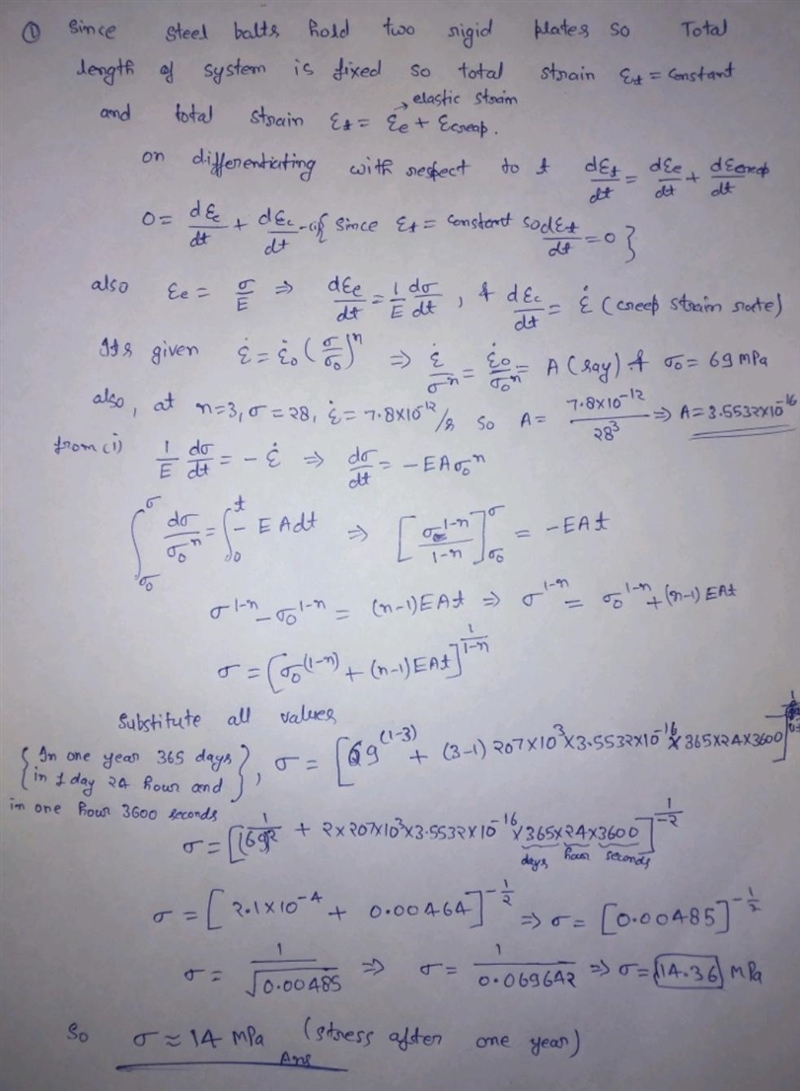 ① Since steel bolts hold two rigid plates so Total
length of system is fixed so total strain Ɛt = constant
→ elastic strain
and total strain Ɛt = Ɛe + Ɛcreep.
on differentiating with respect to t dƐt/dt = dƐe/dt + dƐcreep/dt
0 = dƐe/dt + dƐc/dt -(i) { since Ɛt = constant so dƐt/dt = 0 }
also Ɛe = σ/E ⇒ dƐe/dt = 1/E dσ/dt , & dƐc/dt = ε̇ (creep strain rate)
Its given ε̇ = ε̇0 (σ/σ0)^n ⇒ ε̇/σ^n = ε̇0/σ0^n = A (say) & σ0 = 69 MPa
also, at n=3, σ = 28, ε̇ = 7.8×10^-12/s so A = 7.8×10^-12/28^3 ⇒ A = 3.5532×10^-16
from (i) 1/E dσ/dt = - ε̇ ⇒ dσ/dt = -EAσ0^n
∫_σ0^σ dσ/σ0^n = ∫_0^t - EAdt ⇒ [σ^1-n/1-n]_σ0^σ = -EAt
σ^1-n - σ0^1-n = (n-1)EAt ⇒ σ^1-n = σ0^1-n + (n-1) EAt
σ = [σ0^(1-n) + (n-1)EAt]^1/1-n
Substitute all values
{ In one year 365 days
in 1 day 24 hour and } , σ = [69^(1-3) + (3-1) 207×10^3×3.5532×10^-16 × 365×24×3600]
in one hour 3600 seconds
σ = [1/69^2 + 2×207×10^3×3.5532×10^-16 × 365×24×3600]^1/-2
days hour seconds
σ = [2.1×10^-4 + 0.00464]^-1/2 ⇒ σ = [0.00485]^-1/2
σ = 1/√0.00485 ⇒ σ = 1/0.069642 ⇒ σ = 14.36 MPa
So σ ≈ 14 MPa (stress after one year)
Ans